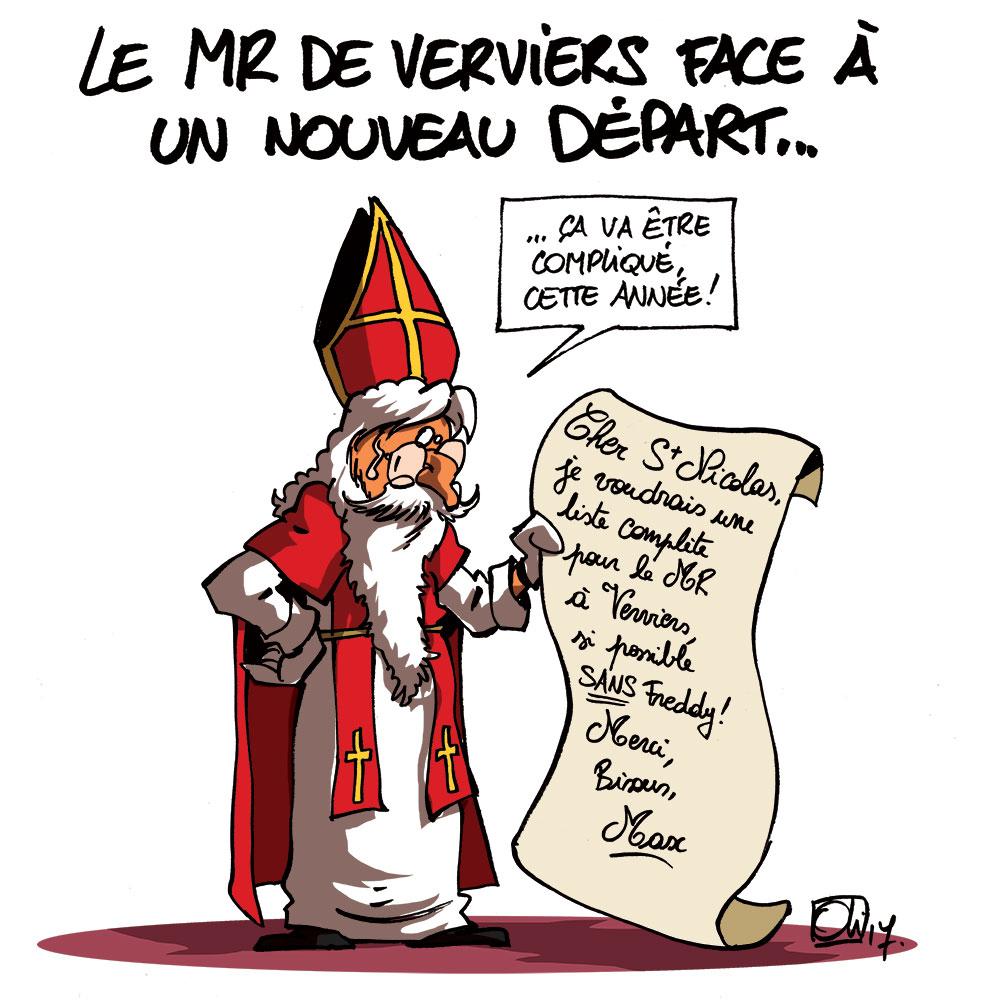 LE MR DE VERVIERS FACE À
UN NOUVEAU DÉPART...
... ÇA VA ÊTRE
COMPLIQUÉ,
CETTE ANNÉE!
Cher St Nicolas,
je voudrais une
liste complète
pour le MR
à Verviers,
si possible
SANS Freddy!
Merci,
Bisous,
Max